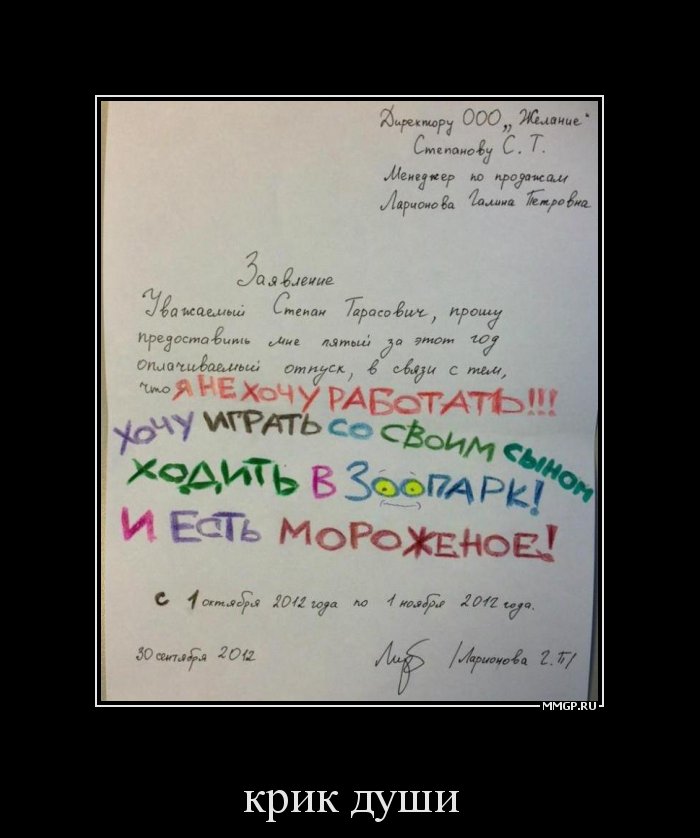 Директору ООО „Желание"
Степанову С. Т.
Менеджер по продажам
Ларионова Галина Петровна
Заявление
Уважаемый Степан Тарасович, прошу
предоставить мне пятый за этот год
оплачиваемый отпуск, в связи с тем,
что Я НЕ ХОЧУ РАБОТАТЬ!!!
ХОЧУ ИГРАТЬ СО СВОИМ СЫНОМ
ХОДИТЬ В ЗООПАРК!
И ЕСТЬ МОРОЖЕНОЕ!
с 1 октября 2012 года по 1 ноября 2012 года.
30 сентября 2012 /Ларионова Г. П/
MMGP.RU
крик души